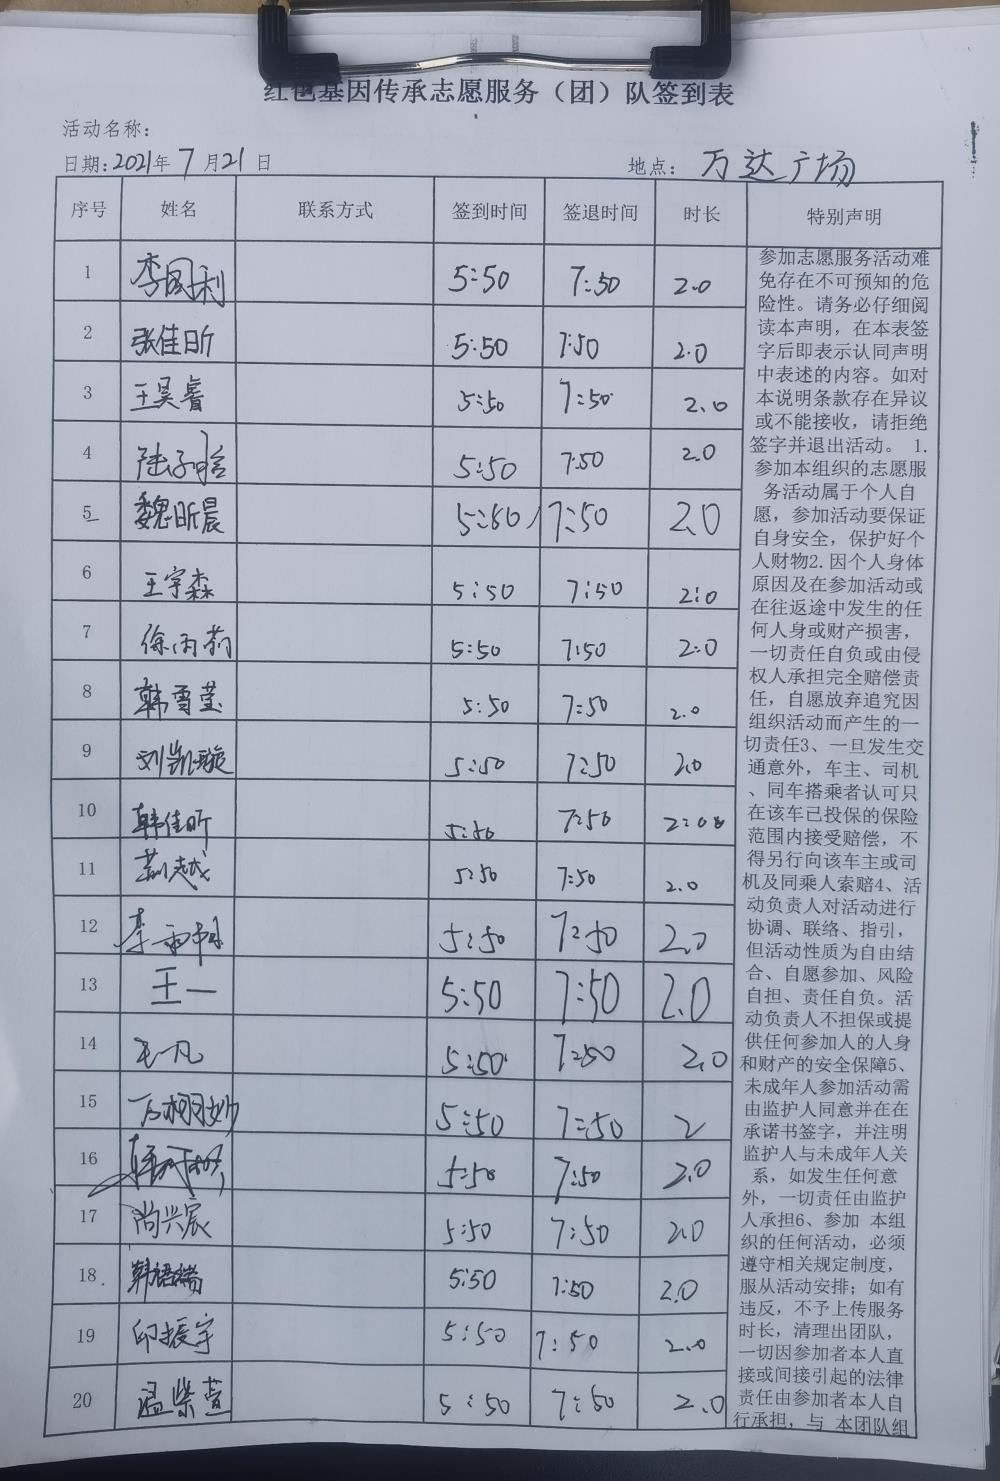 红色基因传承志愿服务（团）队签到表
活动名称：
日期：2021年7月21日 地点：万达广场
序号 姓名 联系方式 签到时间 签退时间 时长 特别声明
1 李国利 5:50 7:50 2.0
2 张佳昕 5:50 7:50 2.0
3 王昊睿 5:50 7:50 2.0
4 陆子晗 5:50 7:50 2.0
5 魏昕晨 5:50 7:50 2.0
6 王宇森 5:50 7:50 2:0
7 5:50 7:50 2:0
8 韩雪莹 5:50 7:50 2.0
9 刘凯璇 5:50 7:50 2.0
10 韩佳昕 5:50 7:50 2:00
11 5:50 7:50 2.0
12 5:50 7:50 2.0
13 王一 5:50 7:50 2.0
14 王一凡 5:50 7:50 2.0
15 5:50 7:50 2
16 5:50 7:50 2.0
17 尚兴宸 5:50 7:50 2.0
18 5:50 7:50 2.0
19 印振宇 5:50 7:50 2.0
20 温紫萱 5:50 7:50 2.0
参加志愿服务活动难
免存在不可预知的危
险性。请务必仔细阅
读本声明，在本表签
字后即表示认同声明
中表述的内容。如对
本说明条款存在异议
或不能接收，请拒绝
签字并退出活动。 1.
参加本组织的志愿服
务活动属于个人自
愿，参加活动要保证
自身安全，保护好个
人财物2.因个人身体
原因及在参加活动或
在往返途中发生的任
何人身或财产损害，
一切责任自负或由侵
权人承担完全赔偿责
任，自愿放弃追究因
组织活动而产生的一
切责任3、一旦发生交
通意外，车主、司机
、同车搭乘者认可只
在该车已投保的保险
范围内接受赔偿，不
得另行向该车主或司
机及同乘人索赔4、活
动负责人对活动进行
协调、联络、指引，
但活动性质为自由结
合、自愿参加、风险
自担、责任自负。活
动负责人不担保或提
供任何参加人的人身
和财产的安全保障5、
未成年人参加活动需
由监护人同意并在在
承诺书签字，并注明
监护人与未成年人关
系，如发生任何意
外，一切责任由监护
人承担6、参加 本组
织的任何活动，必须
遵守相关规定制度，
服从活动安排；如有
违反，不予上传服务
时长，清理出团队，
一切因参加者本人直
接或间接引起的法律
责任由参加者本人自
行承担，与 本团队组